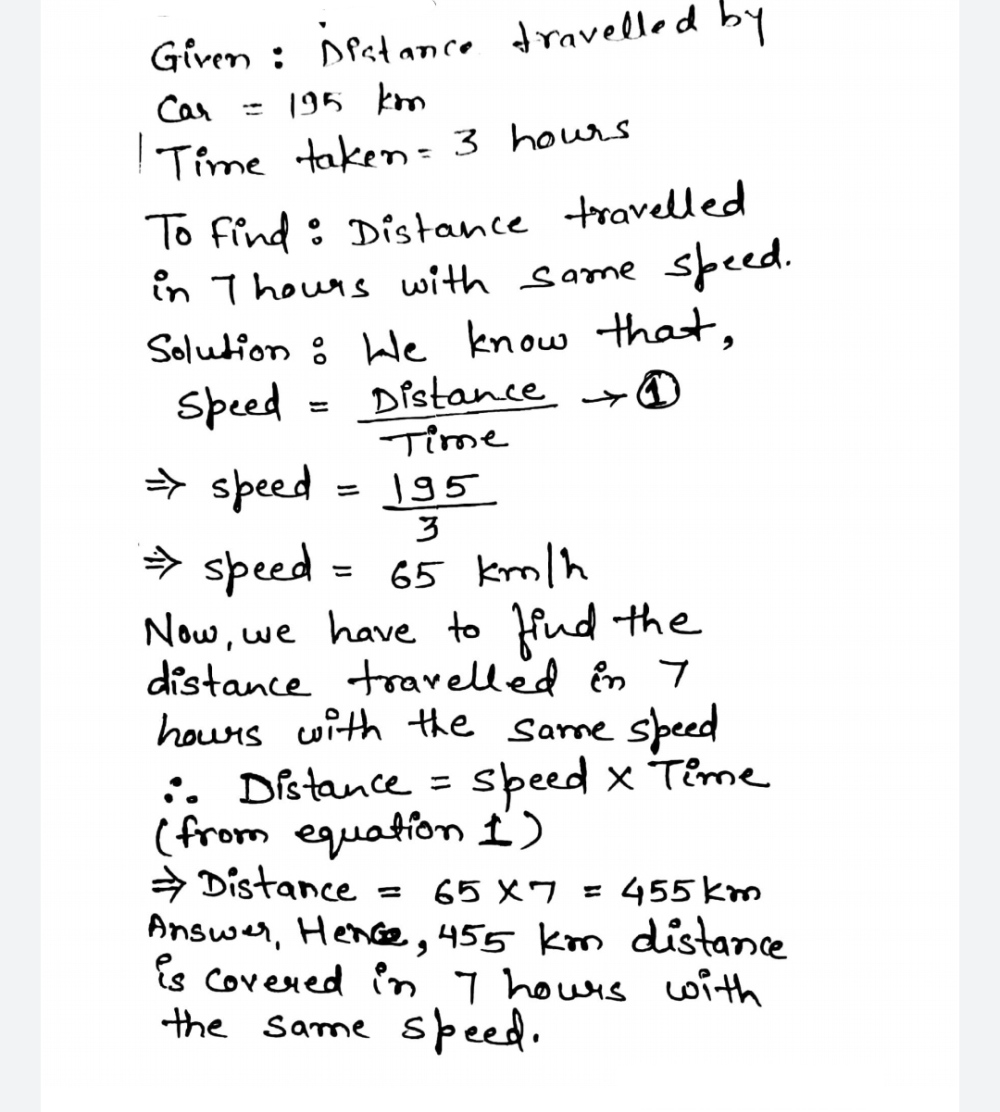 Given : Distance travelled by
Car = 195 km
Time taken = 3 hours
To find : Distance travelled
in 7 hours with same speed.
Solution : We know that,
Speed = Distance → ①
Time
⇒ speed = 195
3
⇒ speed = 65 km/h
Now, we have to find the
distance travelled in 7
hours with the same speed
∴ Distance = speed × Time
(from equation 1)
⇒ Distance = 65 × 7 = 455 km
Answer, Hence, 455 km distance
is covered in 7 hours with
the same speed.